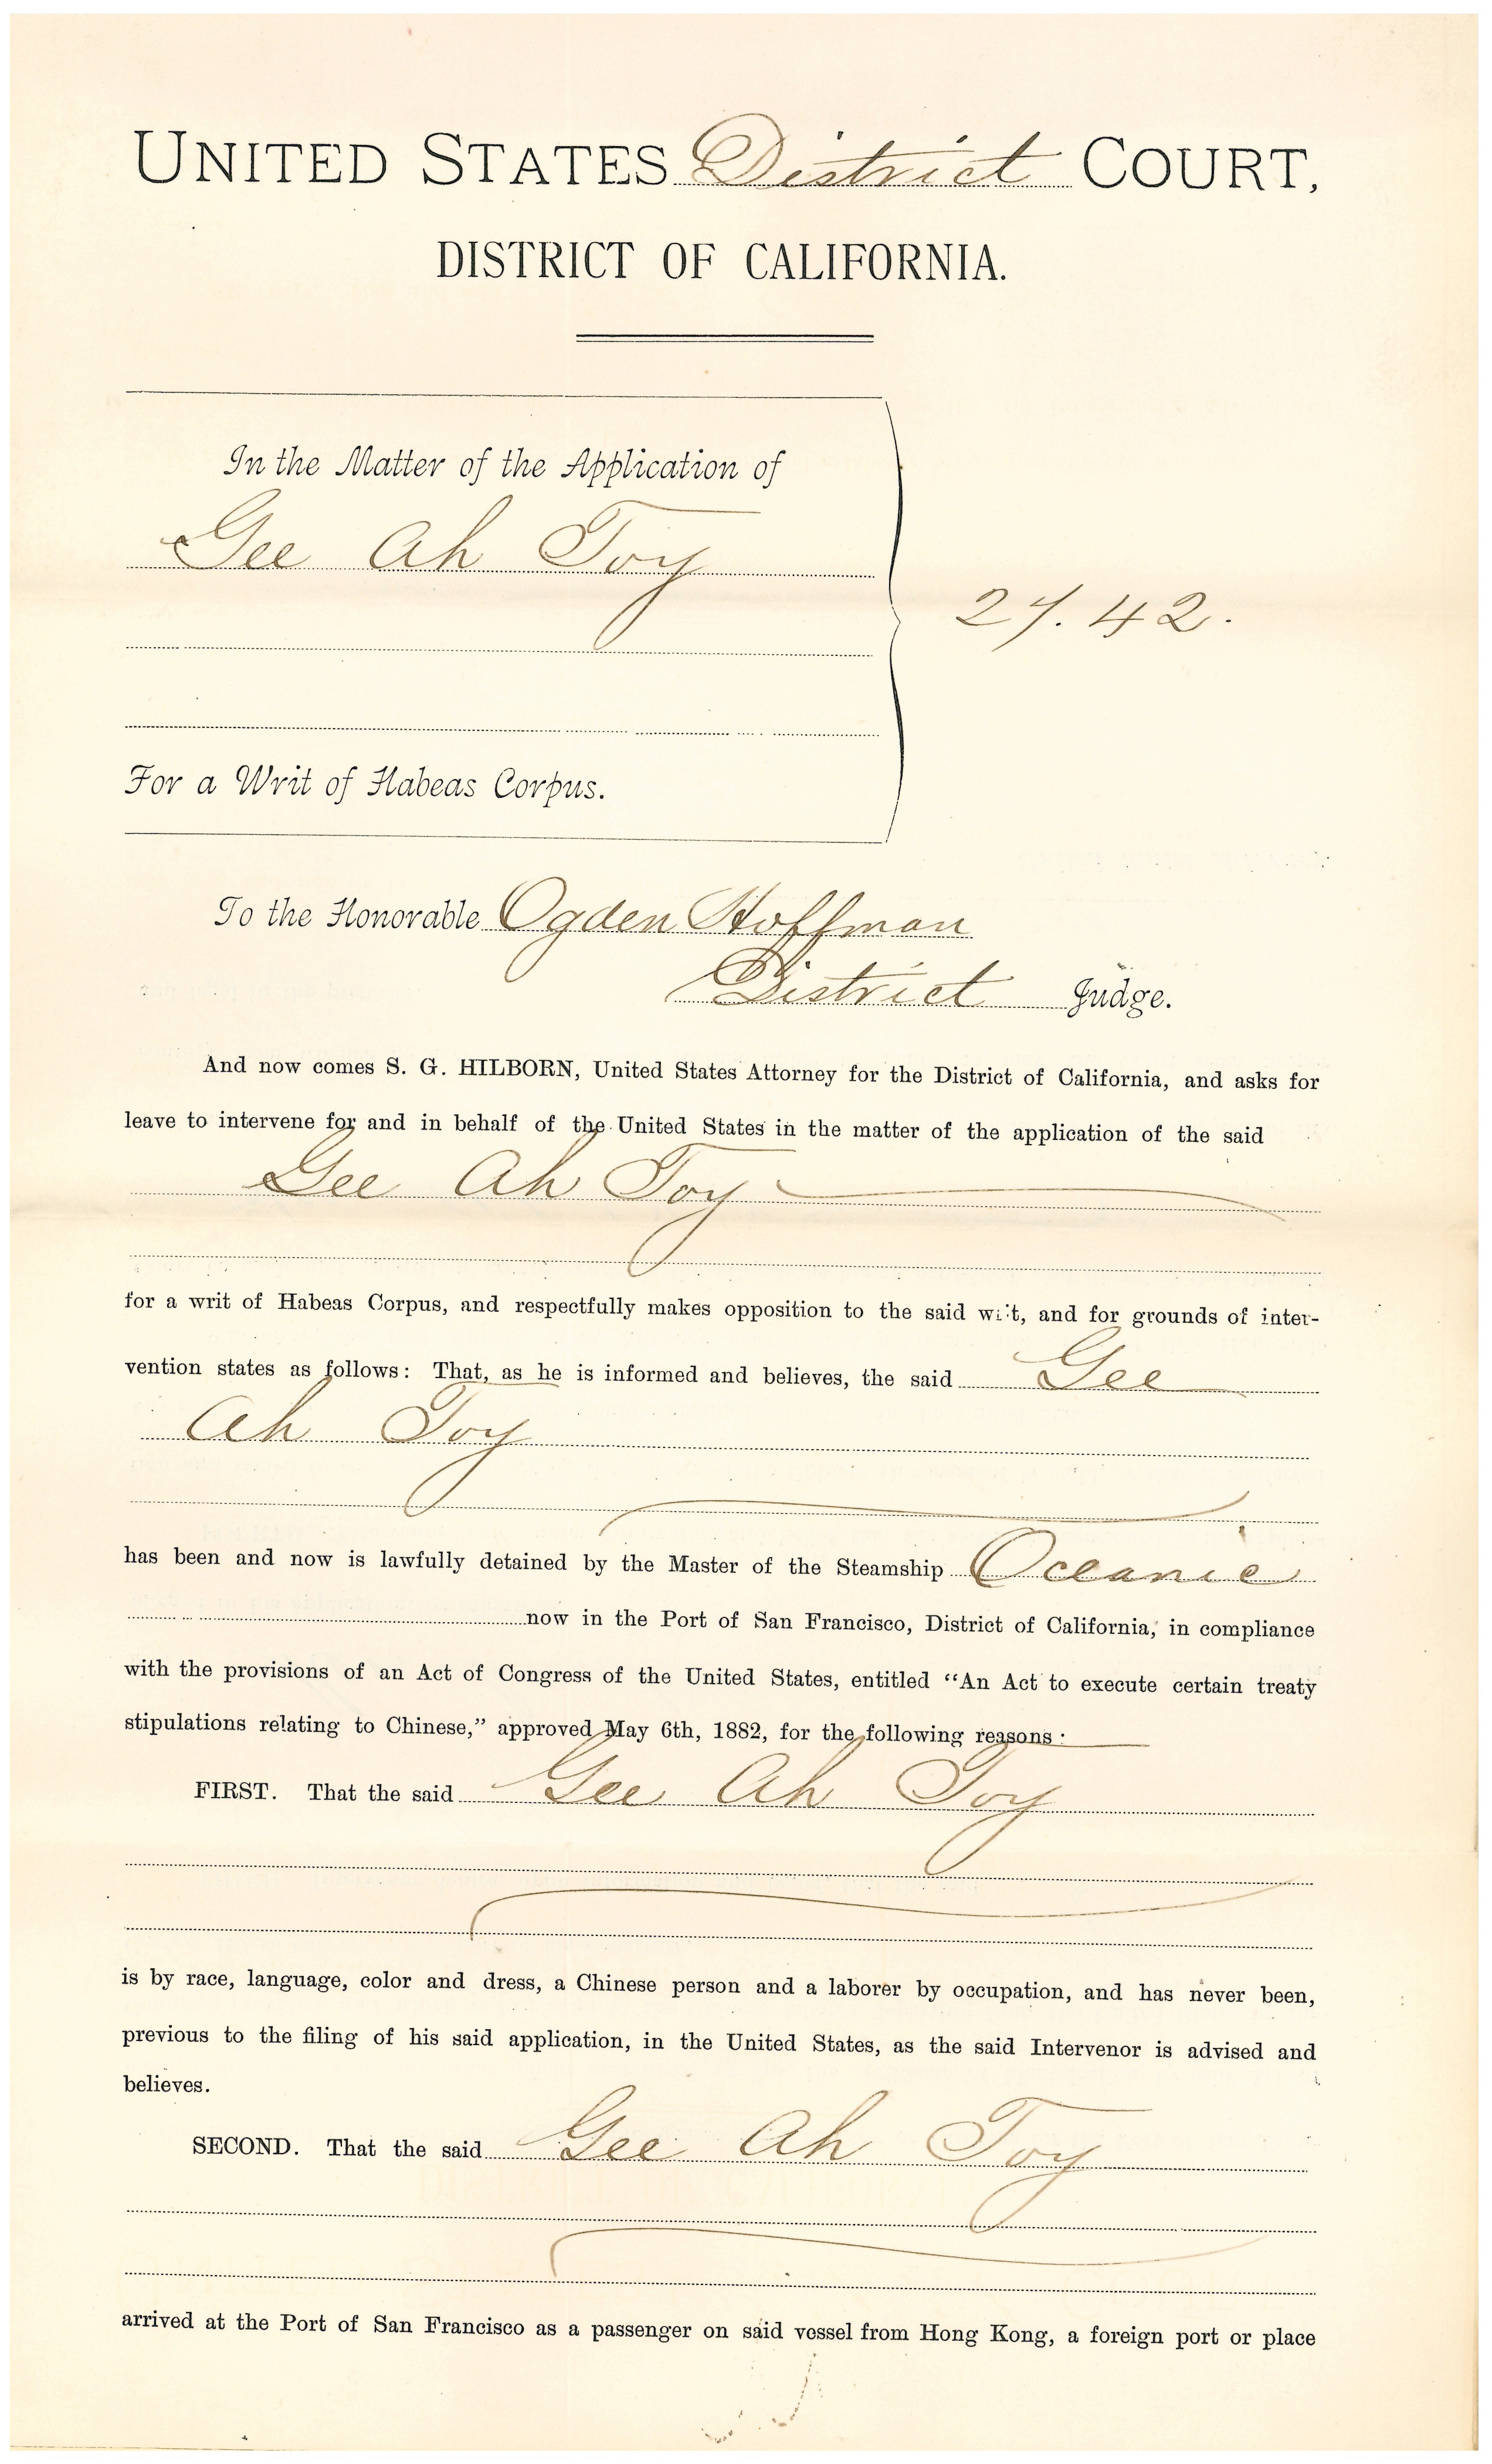 UNITED STATES District COURT,
DISTRICT OF CALIFORNIA.
In the Matter of the Application of
Gee Ah Toy
27.42.
For a Writ of Habeas Corpus.
To the Honorable Ogden Hoffman
District Judge.
And now comes S. G. HILBORN, United States Attorney for the District of California, and asks for
leave to intervene for and in behalf of the United States in the matter of the application of the said
Gee Ah Toy
for a writ of Habeas Corpus, and respectfully makes opposition to the said writ, and for grounds of inter-
vention states as follows: That, as he is informed and believes, the said Gee
Ah Toy
has been and now is lawfully detained by the Master of the Steamship Oceanic
now in the Port of San Francisco, District of California, in compliance
with the provisions of an Act of Congress of the United States, entitled “An Act to execute certain treaty
stipulations relating to Chinese,” approved May 6th, 1882, for the following reasons:
FIRST. That the said Gee Ah Toy
is by race, language, color and dress, a Chinese person and a laborer by occupation, and has never been,
previous to the filing of his said application, in the United States, as the said Intervenor is advised and
believes.
SECOND. That the said Gee Ah Toy
arrived at the Port of San Francisco as a passenger on said vessel from Hong Kong, a foreign port or place